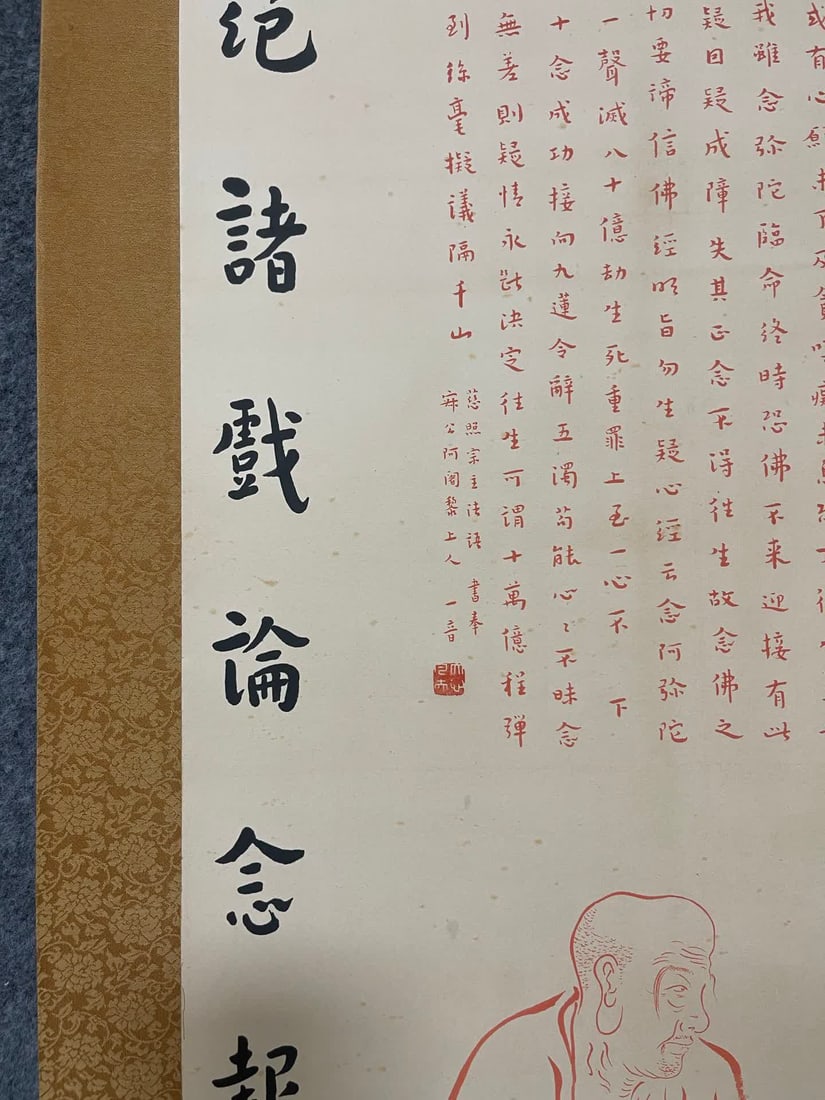 我雖念弥陀臨命終時恐佛不来迎接有此
疑曰疑成障失其正念不淂往生故念佛之
切要諦信佛經明旨勿生疑心經云念阿弥陀
一聲滅八十億劫生死重罪上至一心不下
十念成功接向九蓮令辭五濁苟能心〻不昧念
無差則疑情永斷決定往生可謂十萬億程彈
到絲毫擬議隔千山
慈照宗主法語 書奉
寂公阿闍黎上人 一音
絕諸戲論念報